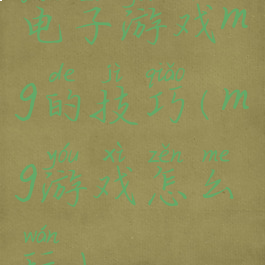 电子游戏m
de jì qiǎo
g的技巧(m
yóu xì zěn me
g游戏怎么
wán